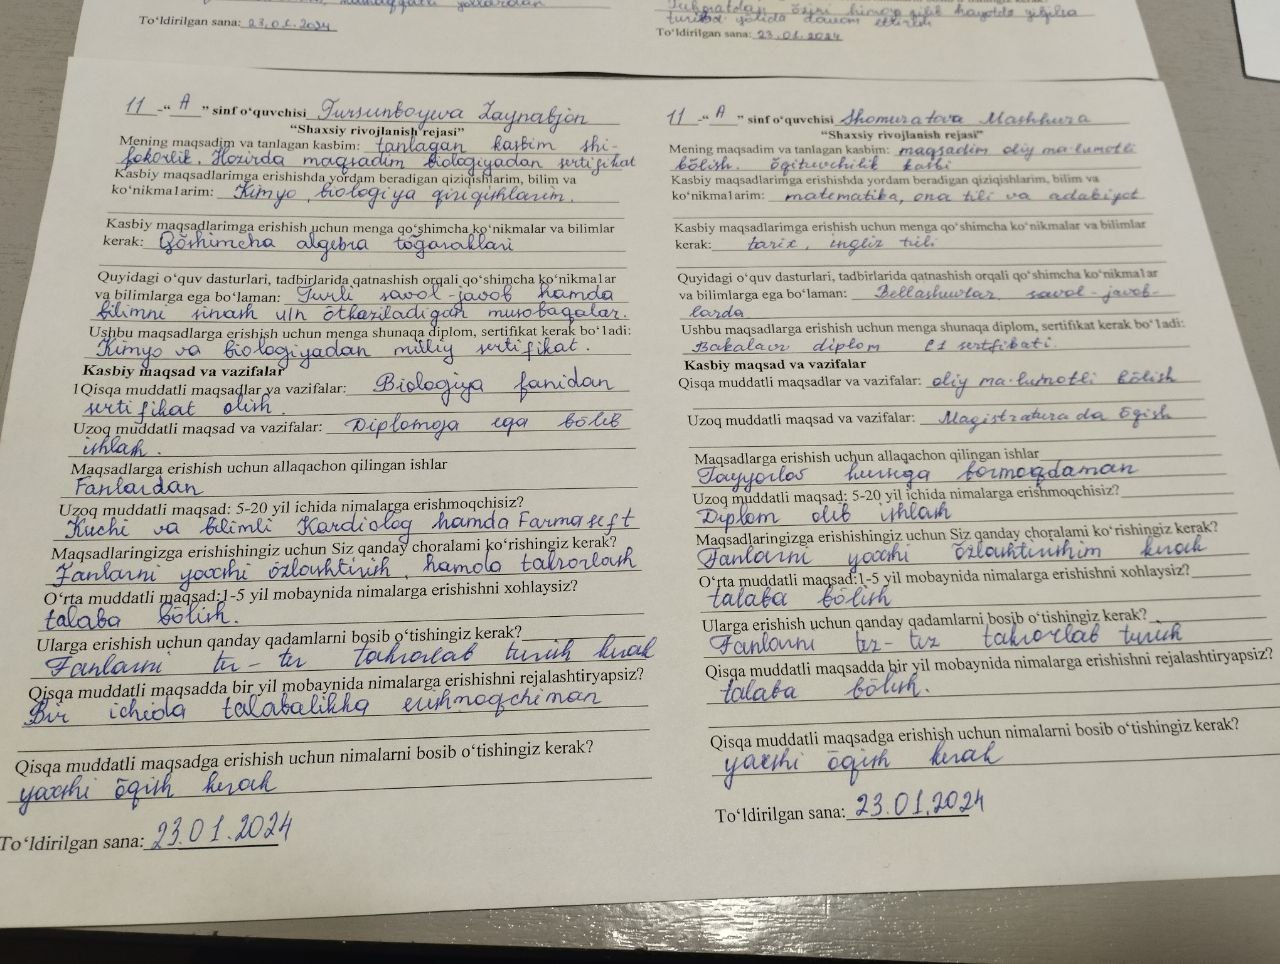 To‘ldirilgan sana: 23.01.2024
hayotda
turish yolida davom ettirish
To‘ldirilgan sana: 23.01.2024
11 -“ A ” sinf o‘quvchisi Tursunboyeva Zaynabjon
“Shaxsiy rivojlanish rejasi”
Mening maqsadim va tanlagan kasbim: tanlagan kasbim shi-
fokorlik. Hozirda maqsadim biologiyadan sertifikat
Kasbiy maqsadlarimga erishishda yordam beradigan qiziqishlarim, bilim va
ko‘nikmalarim: Kimyo, biologiya qiziqishlarim.
Kasbiy maqsadlarimga erishish uchun menga qo‘shimcha ko‘nikmalar va bilimlar
kerak: Qōshimcha algebra tōgaraklari
Quyidagi o‘quv dasturlari, tadbirlarida qatnashish orqali qo‘shimcha ko‘nikmalar
va bilimlarga ega bo‘laman: Turli savol-javob hamda
bilimni sinash u/n ōtkaziladigan musobaqalar.
Ushbu maqsadlarga erishish uchun menga shunaqa diplom, sertifikat kerak bo‘ladi:
Kimyo va biologiyadan milliy sertifikat.
Kasbiy maqsad va vazifalar
1Qisqa muddatli maqsadlar va vazifalar: Biologiya fanidan
sertifikat olish.
Uzoq muddatli maqsad va vazifalar: Diplomga ega bōlib
ishlash.
Maqsadlarga erishish uchun allaqachon qilingan ishlar
Fanlardan
Uzoq muddatli maqsad: 5-20 yil ichida nimalarga erishmoqchisiz?
Kuchi va bilimli Kardiolog hamda Farmasevt
Maqsadlaringizga erishishingiz uchun Siz qanday choralarni ko‘rishingiz kerak?
Fanlarni yaxshi ōzlashtirish, hamda takrorlash
O‘rta muddatli maqsad:1-5 yil mobaynida nimalarga erishishni xohlaysiz?
talaba bōlish.
Ularga erishish uchun qanday qadamlarni bosib o‘tishingiz kerak?
Fanlarni tez-tez takrorlab turish kerak
Qisqa muddatli maqsadda bir yil mobaynida nimalarga erishishni rejalashtiryapsiz?
Bir ichida talabalikka erishmoqchiman
Qisqa muddatli maqsadga erishish uchun nimalarni bosib o‘tishingiz kerak?
yaxshi ōqish kerak
To‘ldirilgan sana: 23.01.2024
11 -“ A ” sinf o‘quvchisi Shomuratova Mashhura
“Shaxsiy rivojlanish rejasi”
Mening maqsadim va tanlagan kasbim: maqsadim oliy ma'lumotli
bōlish. ōqituvchilik kasbi
Kasbiy maqsadlarimga erishishda yordam beradigan qiziqishlarim, bilim va
ko‘nikmalarim: matematika, ona tili va adabiyot
Kasbiy maqsadlarimga erishish uchun menga qo‘shimcha ko‘nikmalar va bilimlar
kerak: tarix, ingliz tili
Quyidagi o‘quv dasturlari, tadbirlarida qatnashish orqali qo‘shimcha ko‘nikmalar
va bilimlarga ega bo‘laman: Bellashuvlar savol-javob-
larda
Ushbu maqsadlarga erishish uchun menga shunaqa diplom, sertifikat kerak bo‘ladi:
Bakalavr diplom C1 sertfikati
Kasbiy maqsad va vazifalar
Qisqa muddatli maqsadlar va vazifalar: oliy ma'lumotli bōlish
Uzoq muddatli maqsad va vazifalar: Magistraturada ōqish
Maqsadlarga erishish uchun allaqachon qilingan ishlar
Tayyorlov kursiga bormoqdaman
Uzoq muddatli maqsad: 5-20 yil ichida nimalarga erishmoqchisiz?
Diplom olib ishlash
Maqsadlaringizga erishishingiz uchun Siz qanday choralarni ko‘rishingiz kerak?
Fanlarni yaxshi ōzlashtirishim kerak
O‘rta muddatli maqsad:1-5 yil mobaynida nimalarga erishishni xohlaysiz?
talaba bōlish
Ularga erishish uchun qanday qadamlarni bosib o‘tishingiz kerak?
Fanlarni tez-tez takrorlab turish
Qisqa muddatli maqsadda bir yil mobaynida nimalarga erishishni rejalashtiryapsiz?
talaba bōlish.
Qisqa muddatli maqsadga erishish uchun nimalarni bosib o‘tishingiz kerak?
yaxshi ōqish kerak
To‘ldirilgan sana: 23.01.2024